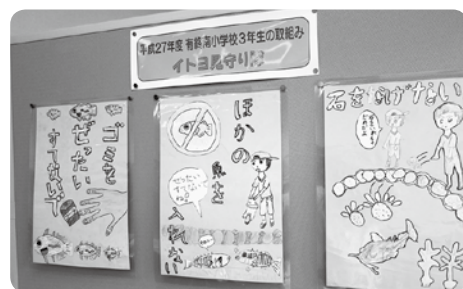 平成27年度 有終南小学校3年生の取組み
イトヨ見守り隊
ゴミを
ぜったい
すてないで
ほかの
魚を
入れない
石をなげない